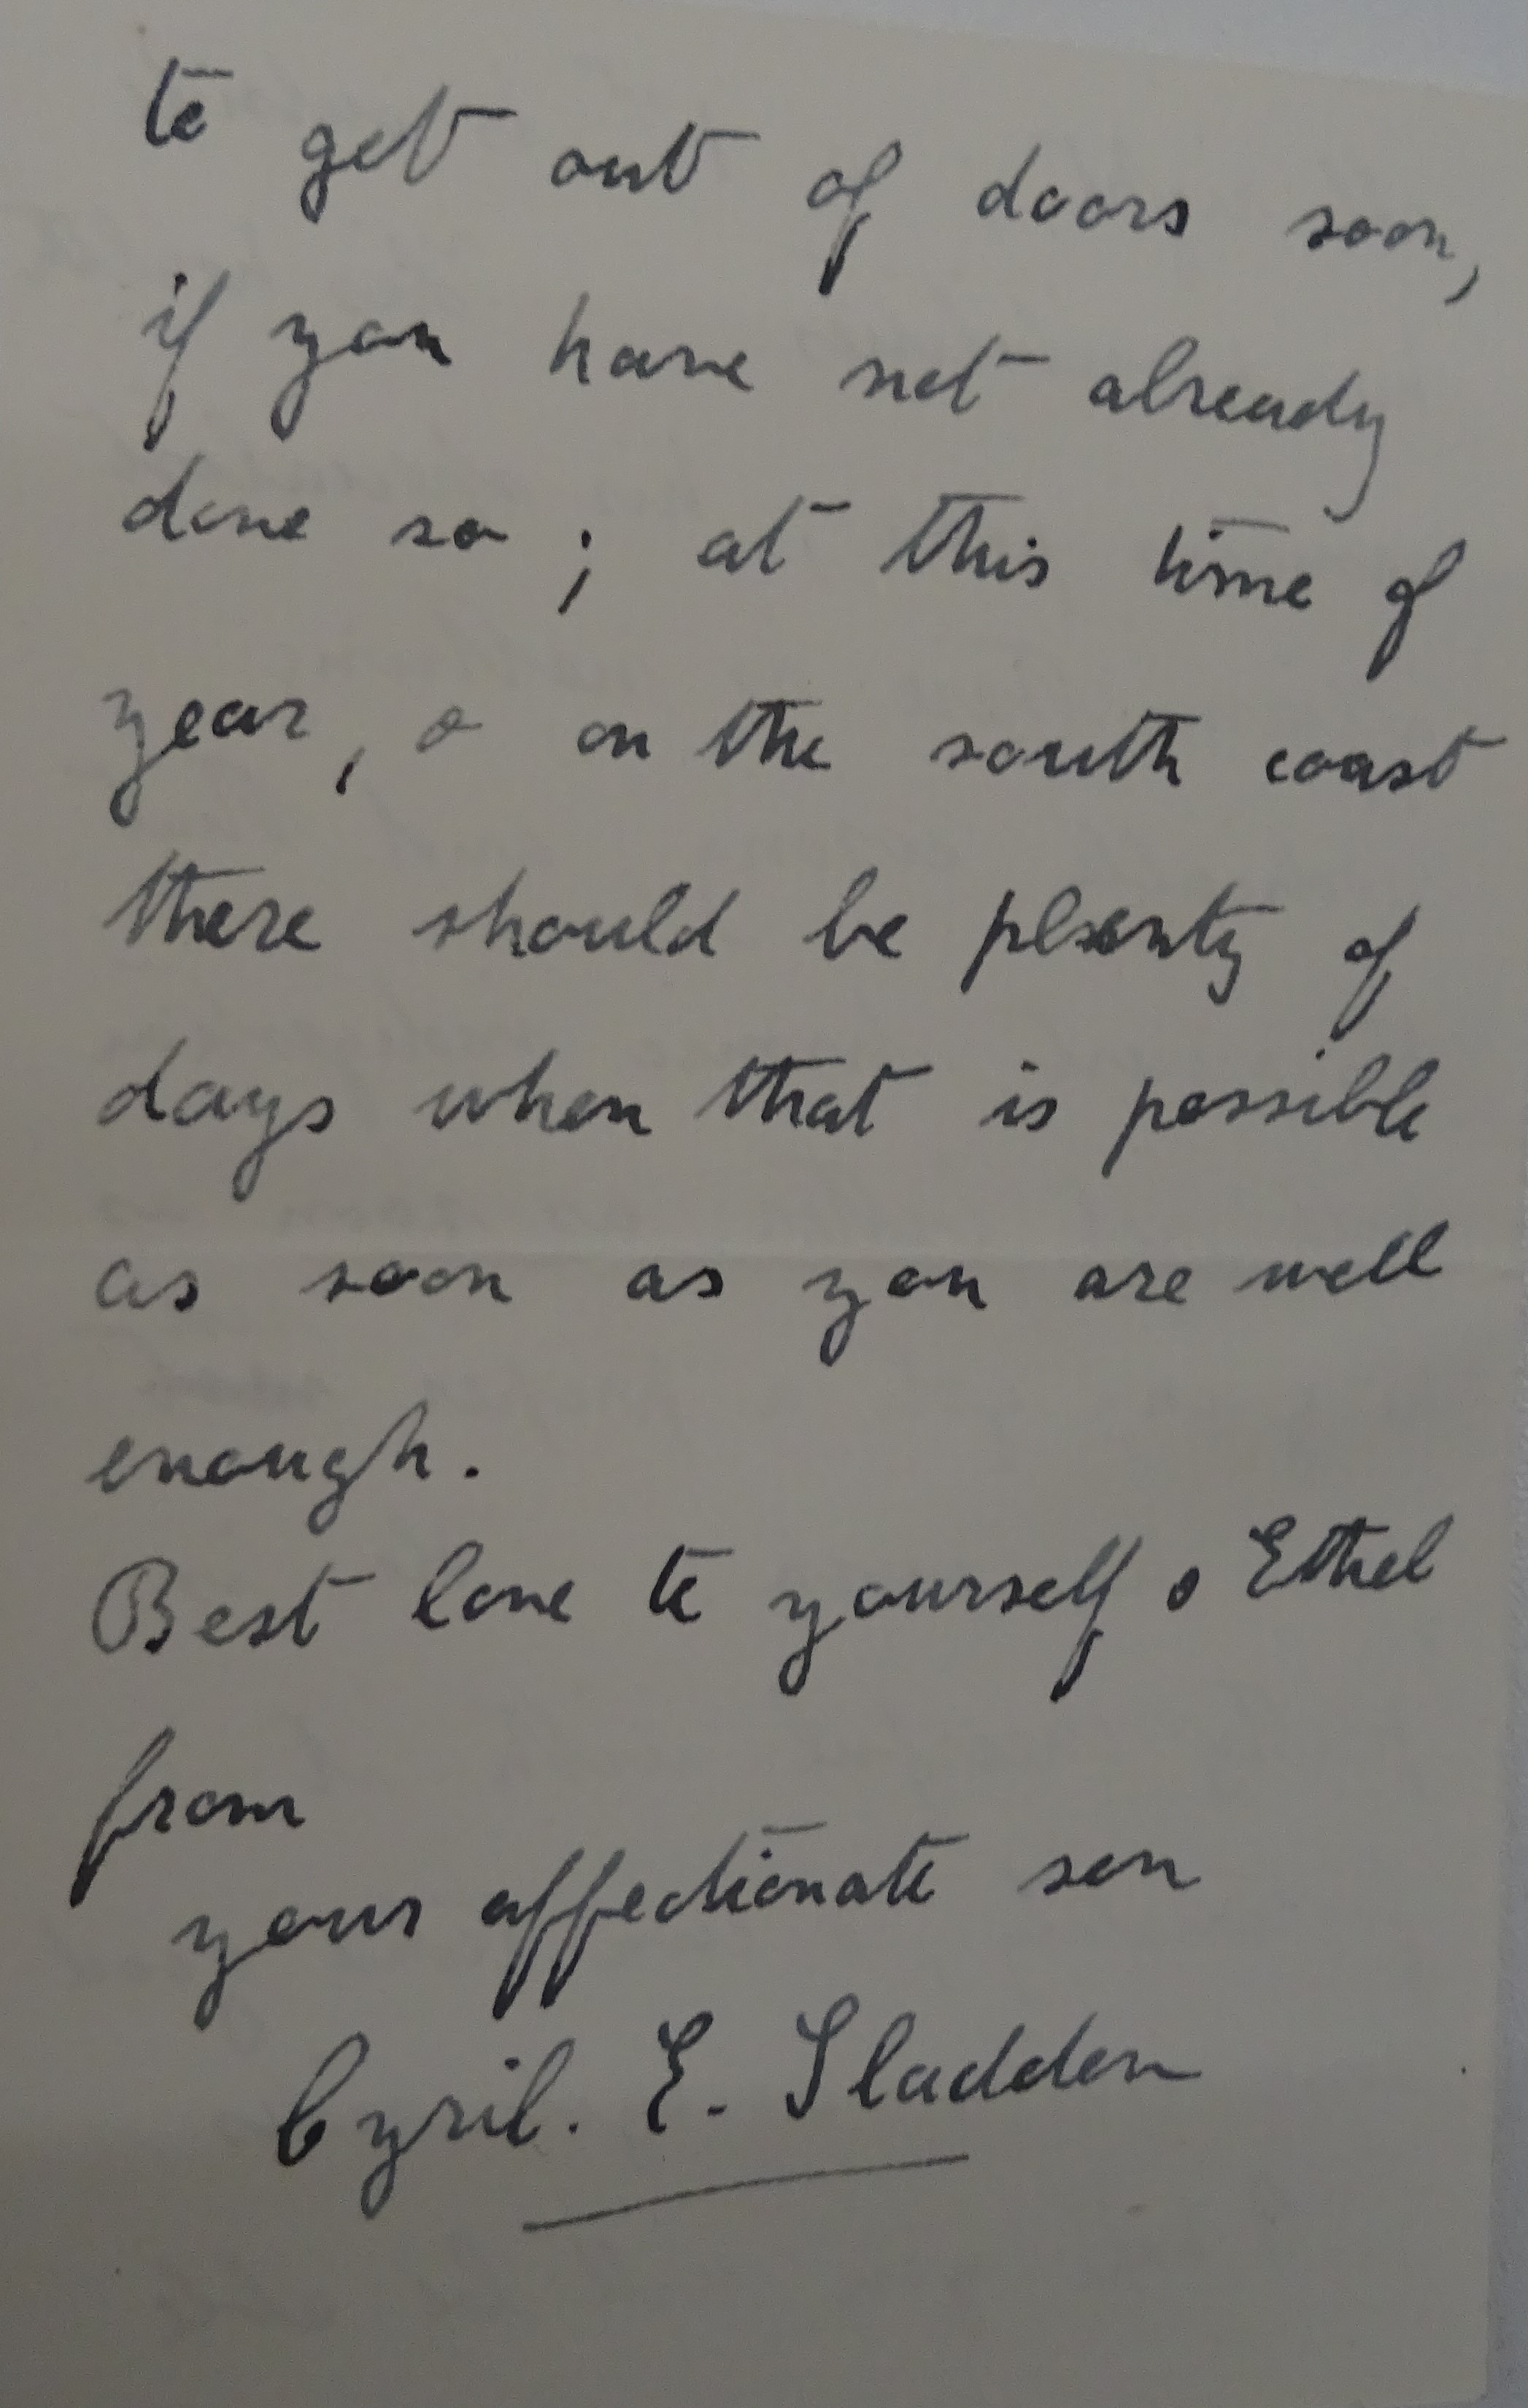 to get out of doors soon,
if you have not already
done so ; at this time of
year, & on the south coast
there should be plenty of
days when that is possible
as soon as you are well
enough.
Best love to yourself & Ethel
from
your affectionate son
Cyril. E. Sladden